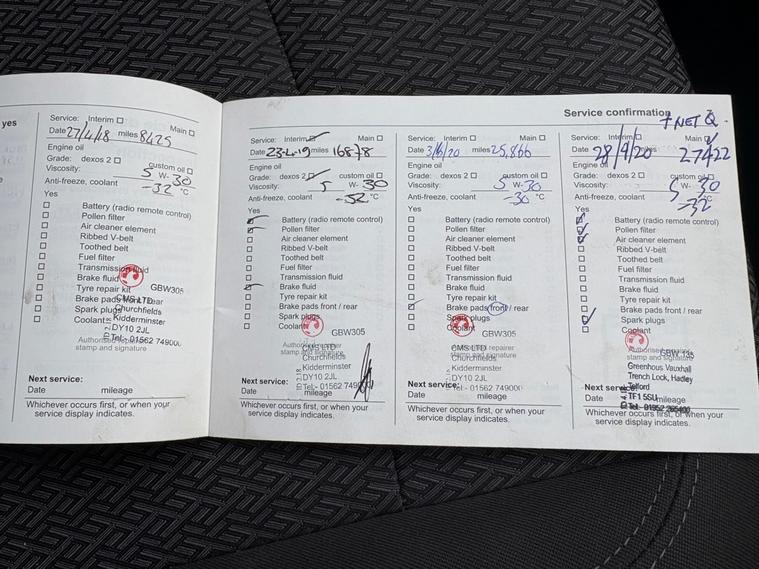 yes
Service: Interim
Date 27/4/18 miles 8425 Main
Engine oil
Grade: dexos 2 custom oil
Viscosity: 5 W- 30
Anti-freeze, coolant -32 °C
Yes
Battery (radio remote control)
Pollen filter
Air cleaner element
Ribbed V-belt
Toothed belt
Fuel filter
Transmission fluid
Brake fluid
GBW305
Tyre repair kit
Brake pads front / rear
CMS LTD
Spark plugs
Churchfields
Coolant
Kidderminster
DY10 2JL
Authorised repairer
Tel:- 01562 749000
stamp and signature
Next service:
Date mileage
Whichever occurs first, or when your
service display indicates.
Service confirmation
Service: Interim Main
Date 23-4-19 miles 16878
Engine oil
Grade: dexos 2 custom oil
Viscosity: 5 W- 30
Anti-freeze, coolant -32 °C
Yes
Battery (radio remote control)
Pollen filter
Air cleaner element
Ribbed V-belt
Toothed belt
Fuel filter
Transmission fluid
Brake fluid
Tyre repair kit
Brake pads front / rear
Spark plugs
Coolant
GBW305
CMS LTD
stamp and signature
Churchfields
Kidderminster
DY10 2JL
Next service:
Tel:- 01562 749000
Date mileage
Whichever occurs first, or when your
service display indicates.
Service: Interim Main
Date 3/6/20 miles 25,866
Engine oil
Grade: dexos 2 custom oil
Viscosity: 5 W- 30
Anti-freeze, coolant -30 °C
Yes
Battery (radio remote control)
Pollen filter
Air cleaner element
Ribbed V-belt
Toothed belt
Fuel filter
Transmission fluid
Brake fluid
Tyre repair kit
Brake pads front / rear
Spark plugs
Coolant
GBW305
CMS LTD
Authorised repairer
Churchfields
stamp and signature
Kidderminster
DY10 2JL
Next service:
Tel:- 01562 749000
Date mileage
Whichever occurs first, or when your
service display indicates.
Service: Interim Main
Date 28/9/20 miles 27422
Engine oil
Grade: dexos 2 custom oil
Viscosity: 5 W- 30
Anti-freeze, coolant -32 °C
Yes
Battery (radio remote control)
Pollen filter
Air cleaner element
Ribbed V-belt
Toothed belt
Fuel filter
Transmission fluid
Brake fluid
Tyre repair kit
Brake pads front / rear
Spark plugs
Coolant
Authorised repairer
stamp and signature
Greenhous Vauxhall
Trench Lock, Hadley
Next service:
Telford
TF1 5SU
Date mileage
Whichever occurs first, or when your
service display indicates.